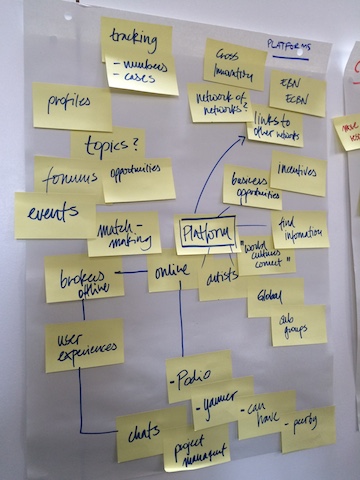 tracking
- numbers
- cases
PLATFORMS
Cross
Innovation
EBN
ECBN
profiles
network of
networks?
links to
other networks
topics?
forums
opportunities
business
opportunities
incentives
events
match-
making
Platform
find
information
"world
cultures
connect"
brokers
offline
online
artists
Global
sub
groups
user
experiences
- Podio
- yammer
- can
have
- peerby
chats
project
managment